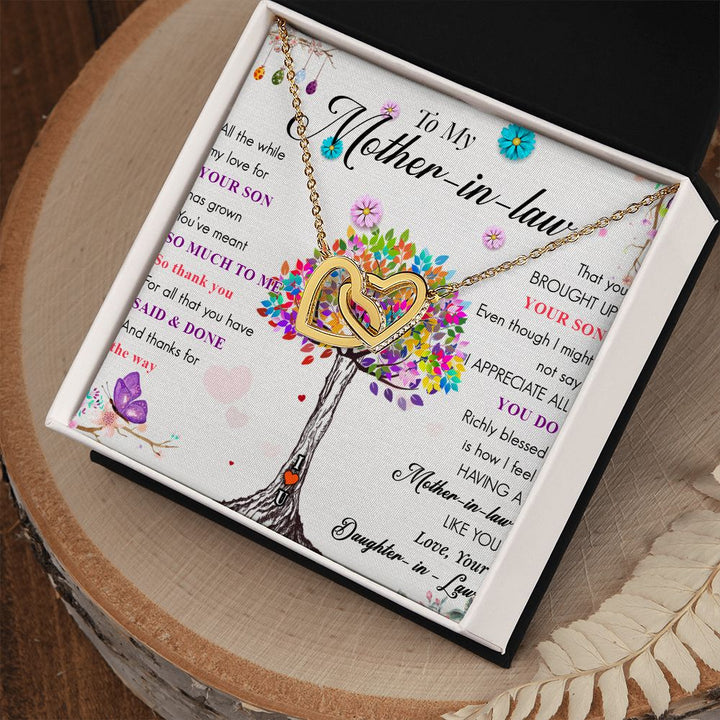 To My
Mother-in-law
All the while
my love for
YOUR SON
has grown
You've meant
SO MUCH TO ME
So thank you
For all that you have
SAID & DONE
And thanks for
the way
That you
BROUGHT UP
YOUR SON
Even though I might
not say
I APPRECIATE ALL
YOU DO
Richly blessed
is how I feel
HAVING A
Mother-in-law
LIKE YOU
Love, Your
Daughter- in - Law
I
U